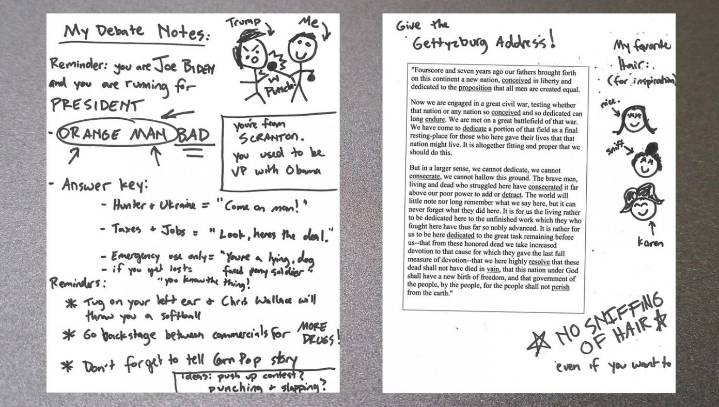 My Debate Notes:
Trump
Me
Reminder: you are JOE BIDEN
and you are running for
PRESIDENT
Punch!
- ORANGE MAN BAD
you're from
SCRANTON.
you used to be
VP with Obama
- Answer key:
- Hunter + Ukraine = "Come on man!"
- Taxes + Jobs = "Look, heres the deal."
- Emergency use only = "You're a lying, dog
faced pony soldier"
- if you get lost = "you know the thing!
Reminders:
* Tug on your left ear + Chris Wallace will
throw you a softball
* Go backstage between commercials for MORE
DRUGS!
* Don't forget to tell Corn Pop story
ideas: push up contest?
punching + slapping?
Give the
Gettyzburg Address!
"Fourscore and seven years ago our fathers brought forth
on this continent a new nation, conceived in liberty and
dedicated to the proposition that all men are created equal.
Now we are engaged in a great civil war, testing whether
that nation or any nation so conceived and so dedicated can
long endure. We are met on a great battlefield of that war.
We have come to dedicate a portion of that field as a final
resting-place for those who here gave their lives that that
nation might live. It is altogether fitting and proper that we
should do this.
But in a larger sense, we cannot dedicate, we cannot
consecrate, we cannot hallow this ground. The brave men,
living and dead who struggled here have consecrated it far
above our poor power to add or detract. The world will
little note nor long remember what we say here, but it can
never forget what they did here. It is for us the living rather
to be dedicated here to the unfinished work which they who
fought here have thus far so nobly advanced. It is rather for
us to be here dedicated to the great task remaining before
us--that from these honored dead we take increased
devotion to that cause for which they gave the last full
measure of devotion--that we here highly resolve that these
dead shall not have died in vain, that this nation under God
shall have a new birth of freedom, and that government of
the people, by the people, for the people shall not perish
from the earth."
My favorite
Hair:
(for inspiration)
nice.
sniff
Karen
NO SNIFFING
OF HAIR
even if you want to